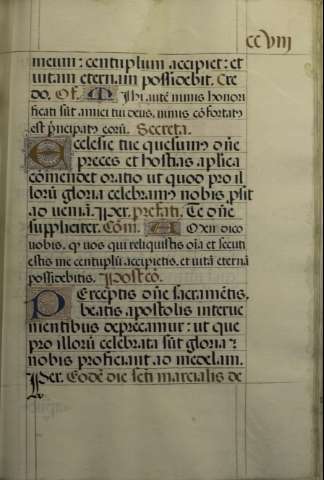 ccviij
meum: centuplum accipiet: et
uitam eternam possidebit. Cre
do. Of. Mihi autē nimis honori
ficati sūt amici tui deus, nimis cōfortatꝰ
est prīcipatꝰ eorū. Secreta.
Ecclesie tue quesumꝰ dñe
preces et hostias aplica
cōmendet oratio ut quod pro il
lorū gloria celebramꝰ nobis ꝓsit
ad ueniā. Per. prefati. Te dñe
suppliciter. Cōm. Amen dico
uobis. qꝫ uos qui reliquistis oīa et secuti
estis me centuplū accipietis. et uitā eternā
possidebitis. Postcō.
Perceptis dñe sacramētis.
beatis apostolis interue
nientibus deprecamur: ut que
pro illorū celebrata sūt gloria:
nobis proficiant ad medelam.
Per. Eodē die scti marcialis de